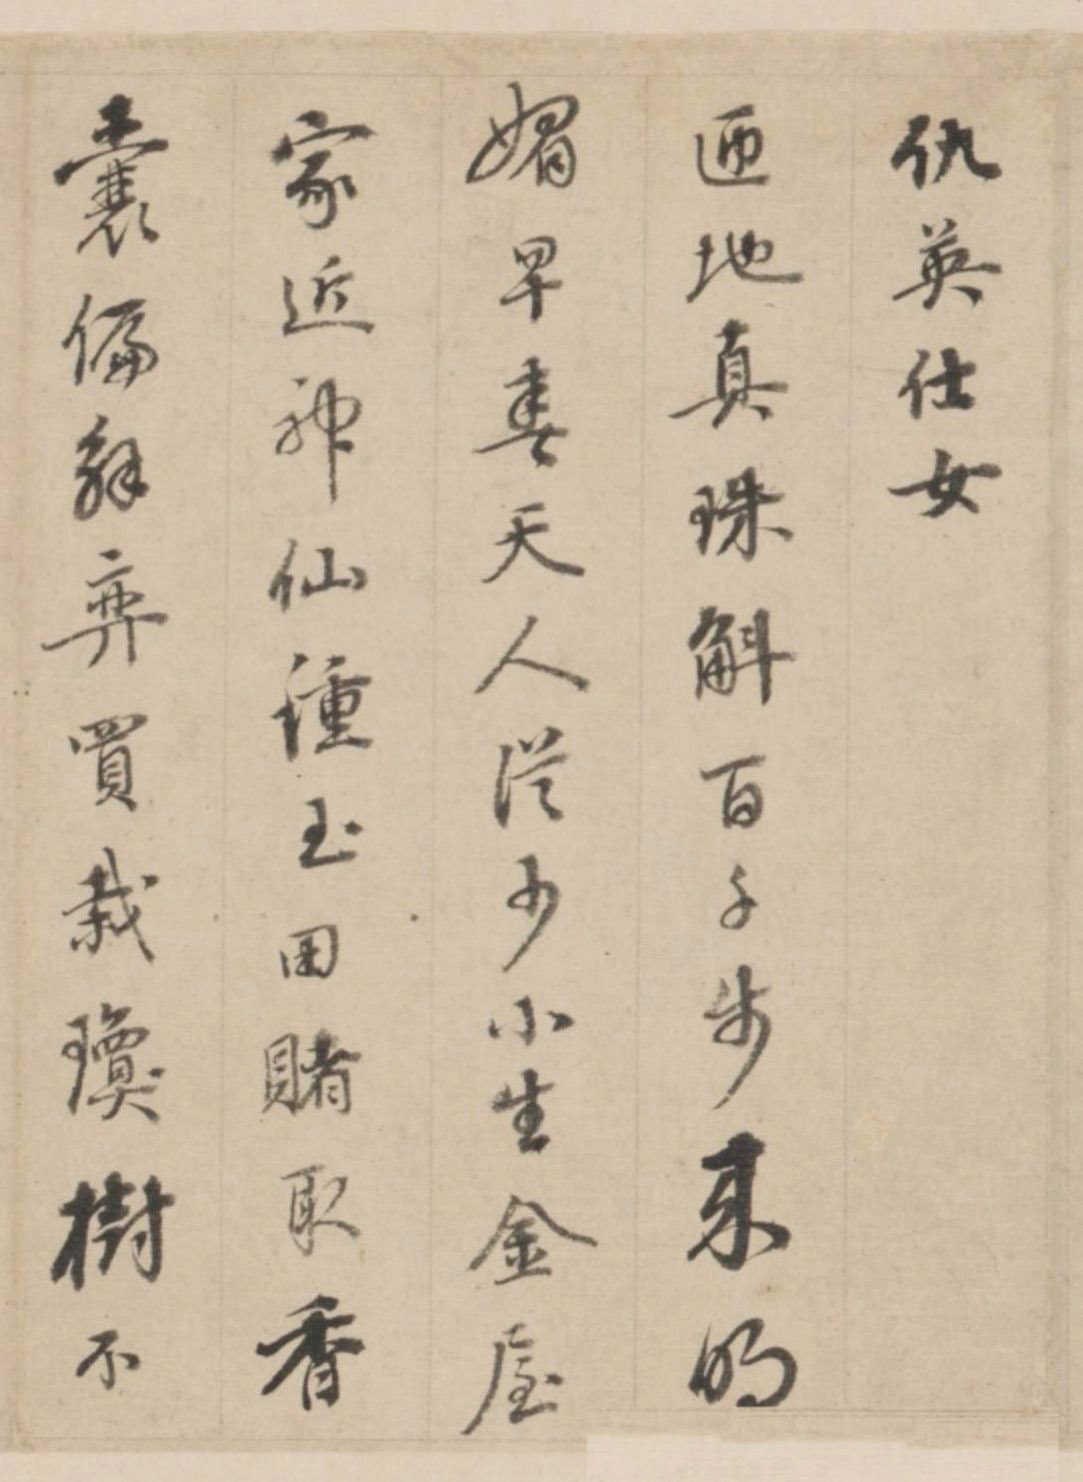 仇英仕女
匝地真珠斛百子步來明
媚早春天人從少小生金屋
家近神仙種玉田賭取香
囊偏解弄買栽瓊樹不